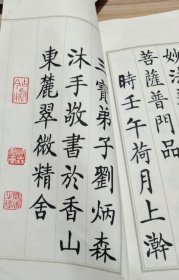 妙法
菩薩普門品
時壬午荷月上澣
三寶弟子劉炳森
沐手敬書於香山
東麓翠微精舍